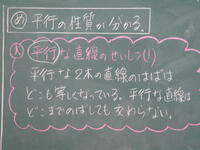 め 平行の性質が分かる。
平行な直線のせいしつ(1)
平行な2本の直線のはばは
どこも等しくなっている。平行な直線は
どこまでのばしても交わらない。